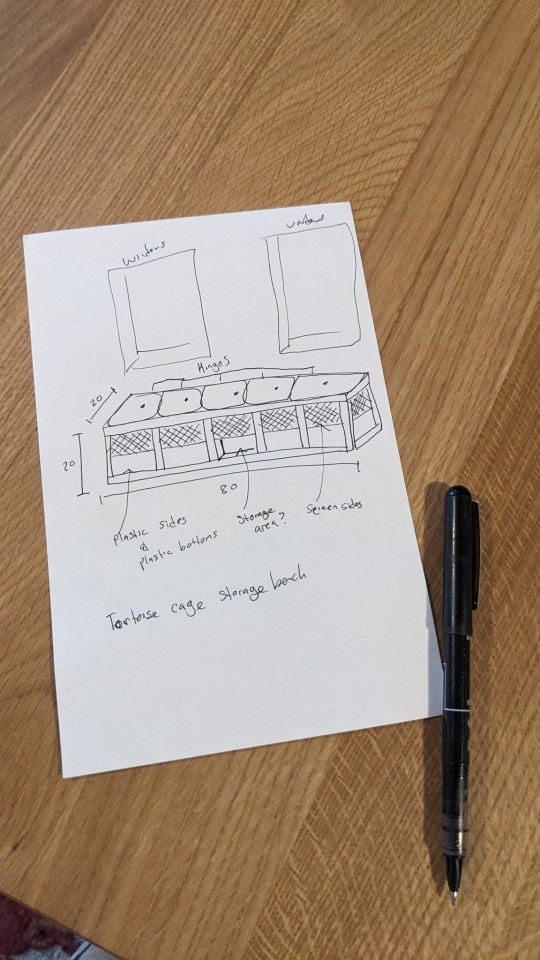 Windows
Windows
Hinges
20
20
80
Plastic sides
&
Plastic bottoms
Storage
area?
Screen sides
Tortoise cage storage bench